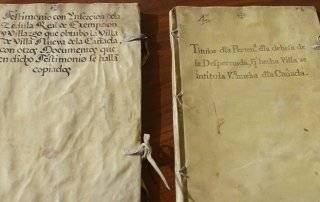 Testimonio con Insercion de la
Zedula Real de Exempcion
y Villazgo que obtubo la Villa
de Villa Nueva de la Cañada,
con otros Documentos que
en dicho Testimonio se hallan
copiados
12
Titulos dla Perm.ª dla dehesa de
la Despernada, q̃ hecha Villa se
intitula V.ª nueba dla Cañada.